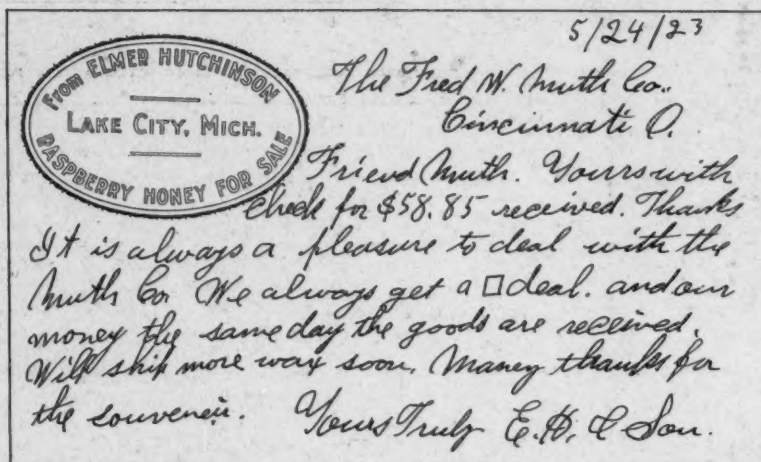 5/24/23
From ELMER HUTCHINSON
LAKE CITY, MICH.
RASPBERRY HONEY FOR SALE
The Fred W. Muth Co..
Cincinnati O.
Friend Muth. Yours with
Check for $58.85 received. Thanks
It is always a pleasure to deal with the
Muth Co. We always get a □ deal. and our
money the same day the goods are received.
Will ship more wax soon. Maney thanks for
the souvenir. Yours Truly E. H. & Son.